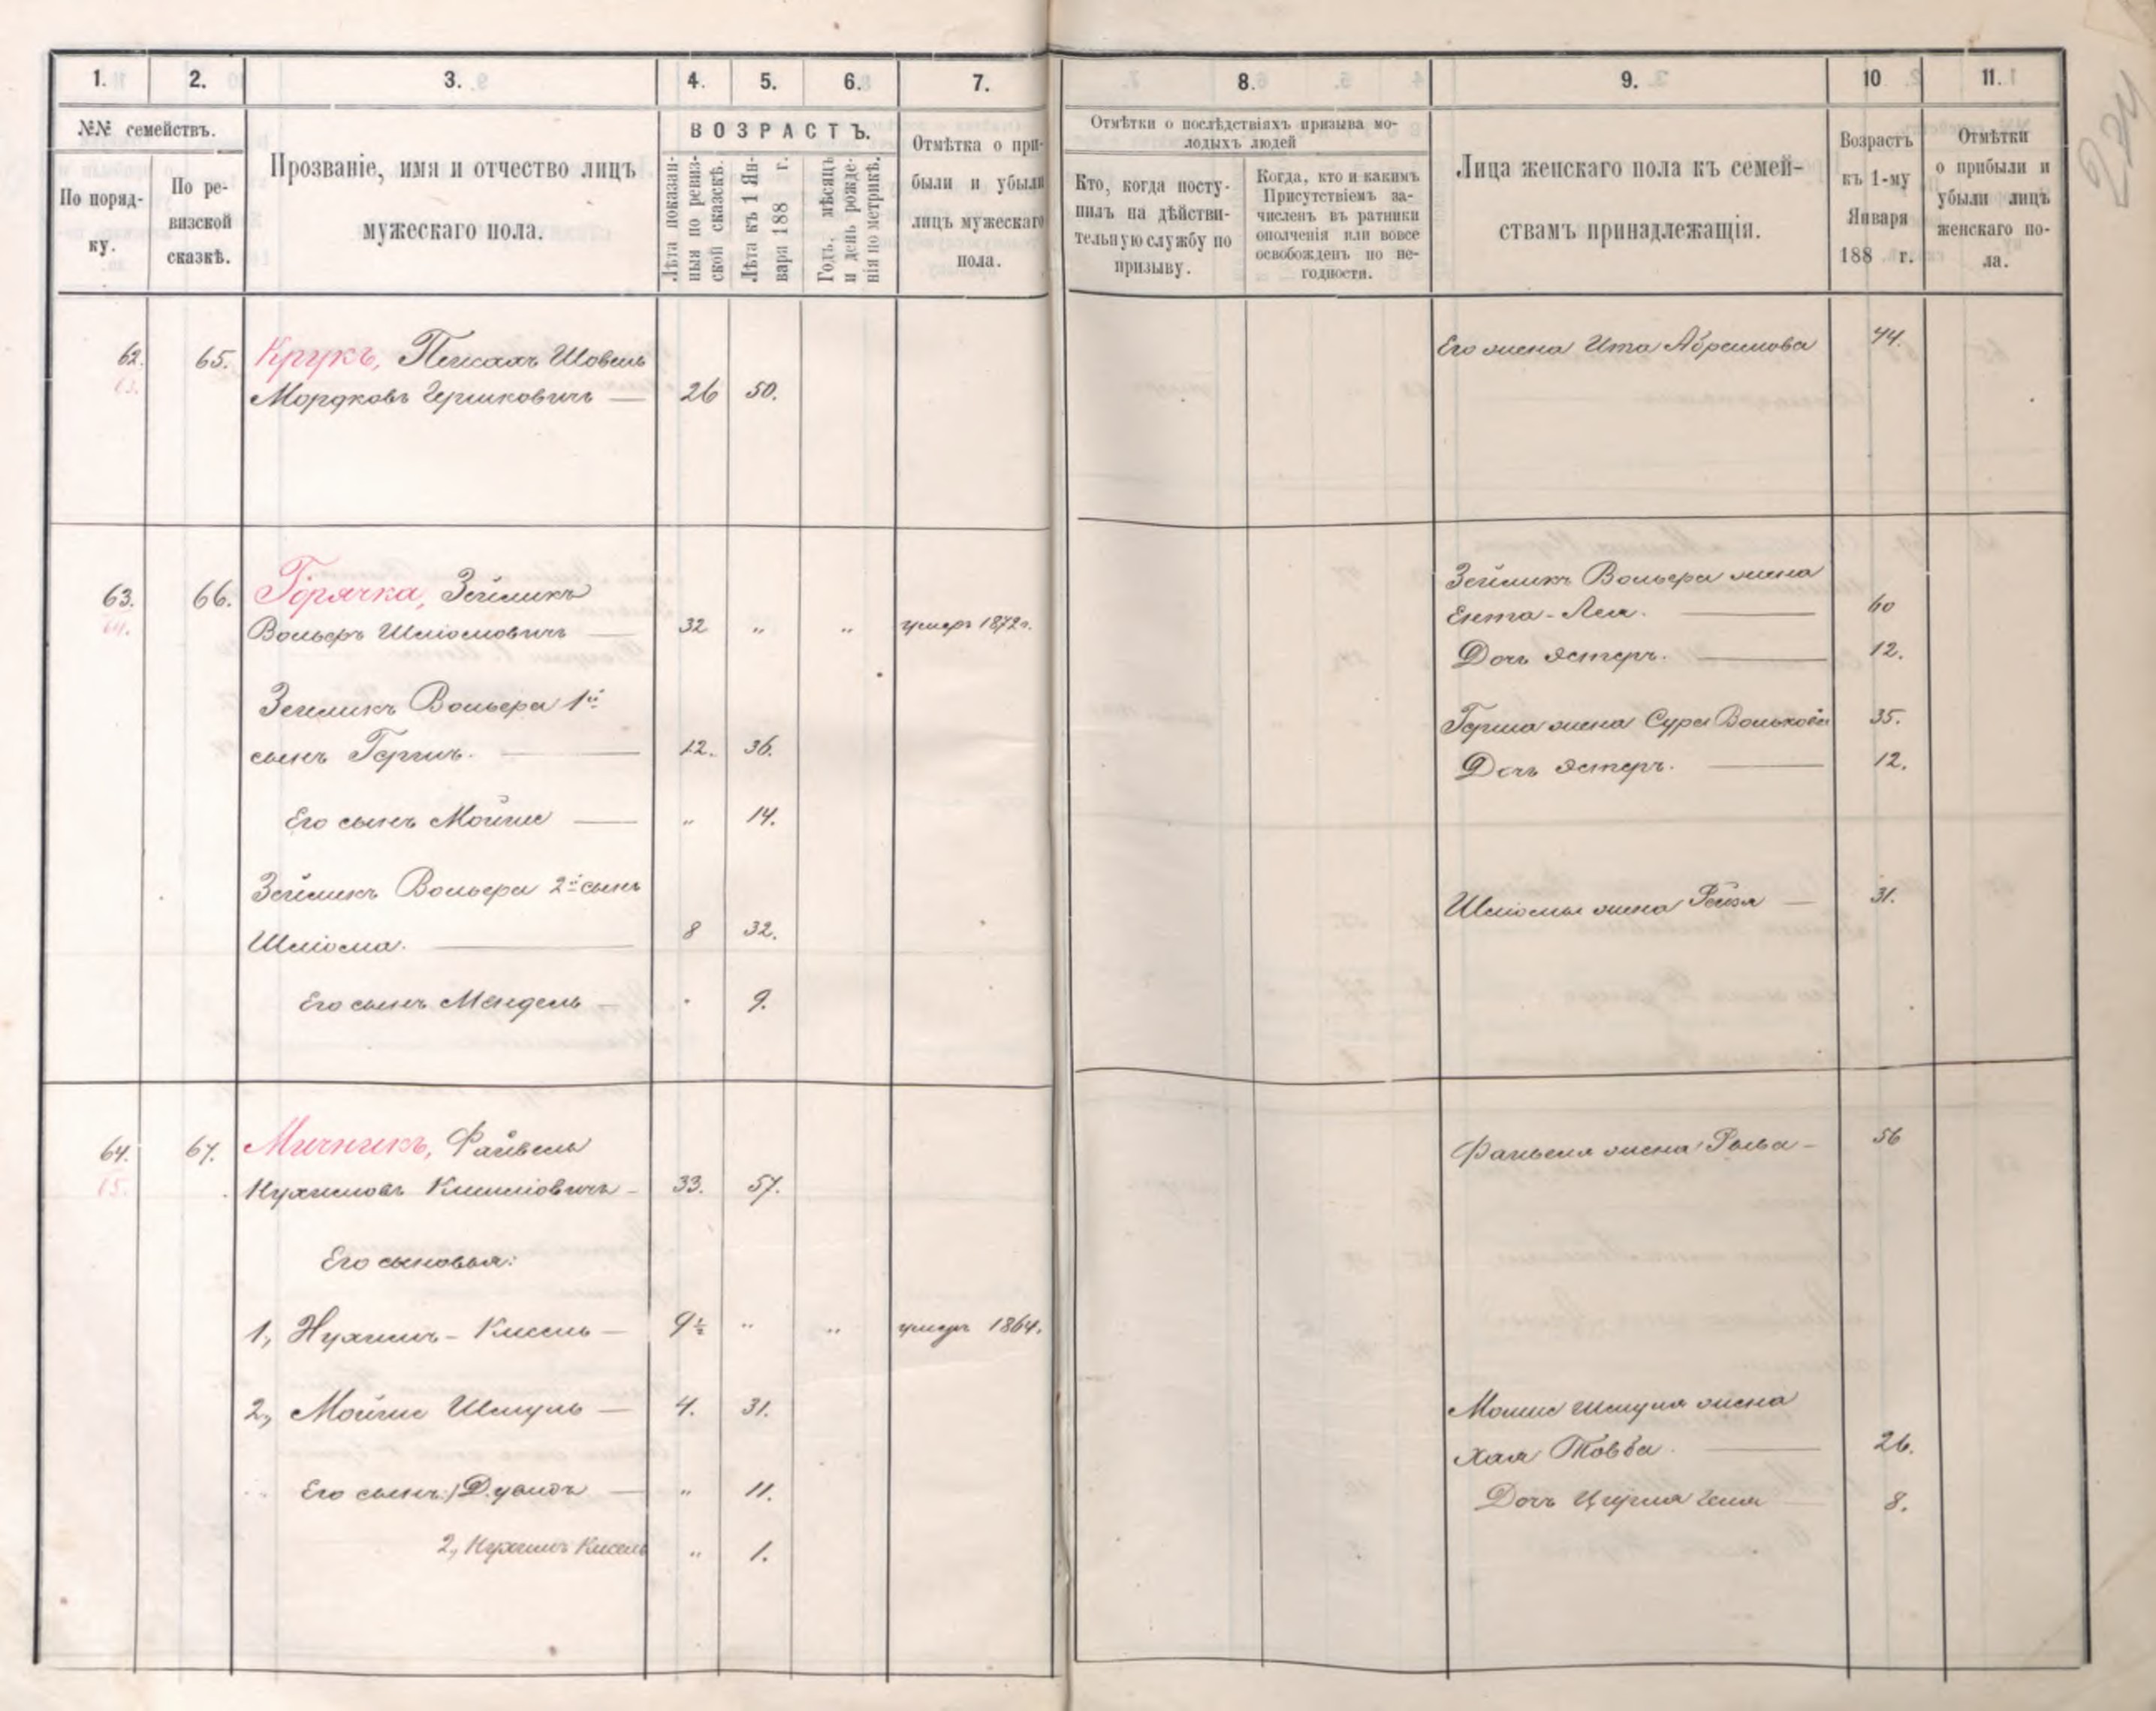 1.
2.
3.
4.
5.
6.
7.
8.
9.
10
11.
№№ семействъ.
По поряд-
ку.
По ре-
визской
сказкѣ.
Прозваніе, имя и отчество лицъ
мужескаго пола.
ВОЗРАСТЪ.
Лѣта показан-
ныя по ревиз-
ской сказкѣ.
Лѣта къ 1 Ян-
варя 188 г.
Годъ, мѣсяцъ
и день рожде-
нія по метрикѣ.
Отмѣтка о при-
были и убыли
лицъ мужескаго
пола.
Отмѣтки о послѣдствіяхъ призыва мо-
лодыхъ людей
Кто, когда посту-
пилъ на дѣйстви-
тельную службу по
призыву.
Когда, кто и какимъ
Присутствіемъ за-
численъ въ ратники
ополченія или вовсе
освобожденъ по не-
годности.
Лица женскаго пола къ семей-
ствамъ принадлежащія.
Возрастъ
къ 1-му
Января
188 г.
Отмѣтки
о прибыли и
убыли лицъ
женскаго по-
ла.
62. 65. Крукъ, Пейсахъ Шовель
Мордковъ Гершковичъ — 26 50.
Его жена Ита Абрамова 44.
63. 66. Горячка, Зейликъ
Вольфъ Шліомовичъ — 32 " " умеръ 1872 г.
Зейликъ Вольфа 1й
сынъ Гершъ. — 12. 36.
Его сынъ Мойше — " 14.
Зейликъ Вольфа 2й сынъ
Шліома. — 8 32.
Его сынъ Мендель — 9.
Зейликъ Вольфа жена
Ента-Лея. — 60
Дочь Эстеръ. — 12.
Герша жена Сура Волькова 35.
Дочь Эстеръ. — 12.
Шліомы жена Рейзя — 31.
64. 67. Мичникъ, Файвель
Нухимовъ — 33. 57.
Его сыновья:
1, Нухимъ-Кисель — 9½ " " умеръ 1864.
2, Мойше Шмуль — 4. 31.
Его сынъ: 1, — " 11.
2, Нухимъ Кисель " 1.
Файвеля жена — 56
Мойше Шмуля жена
Хая Товба. — 26.
Дочь — 8.